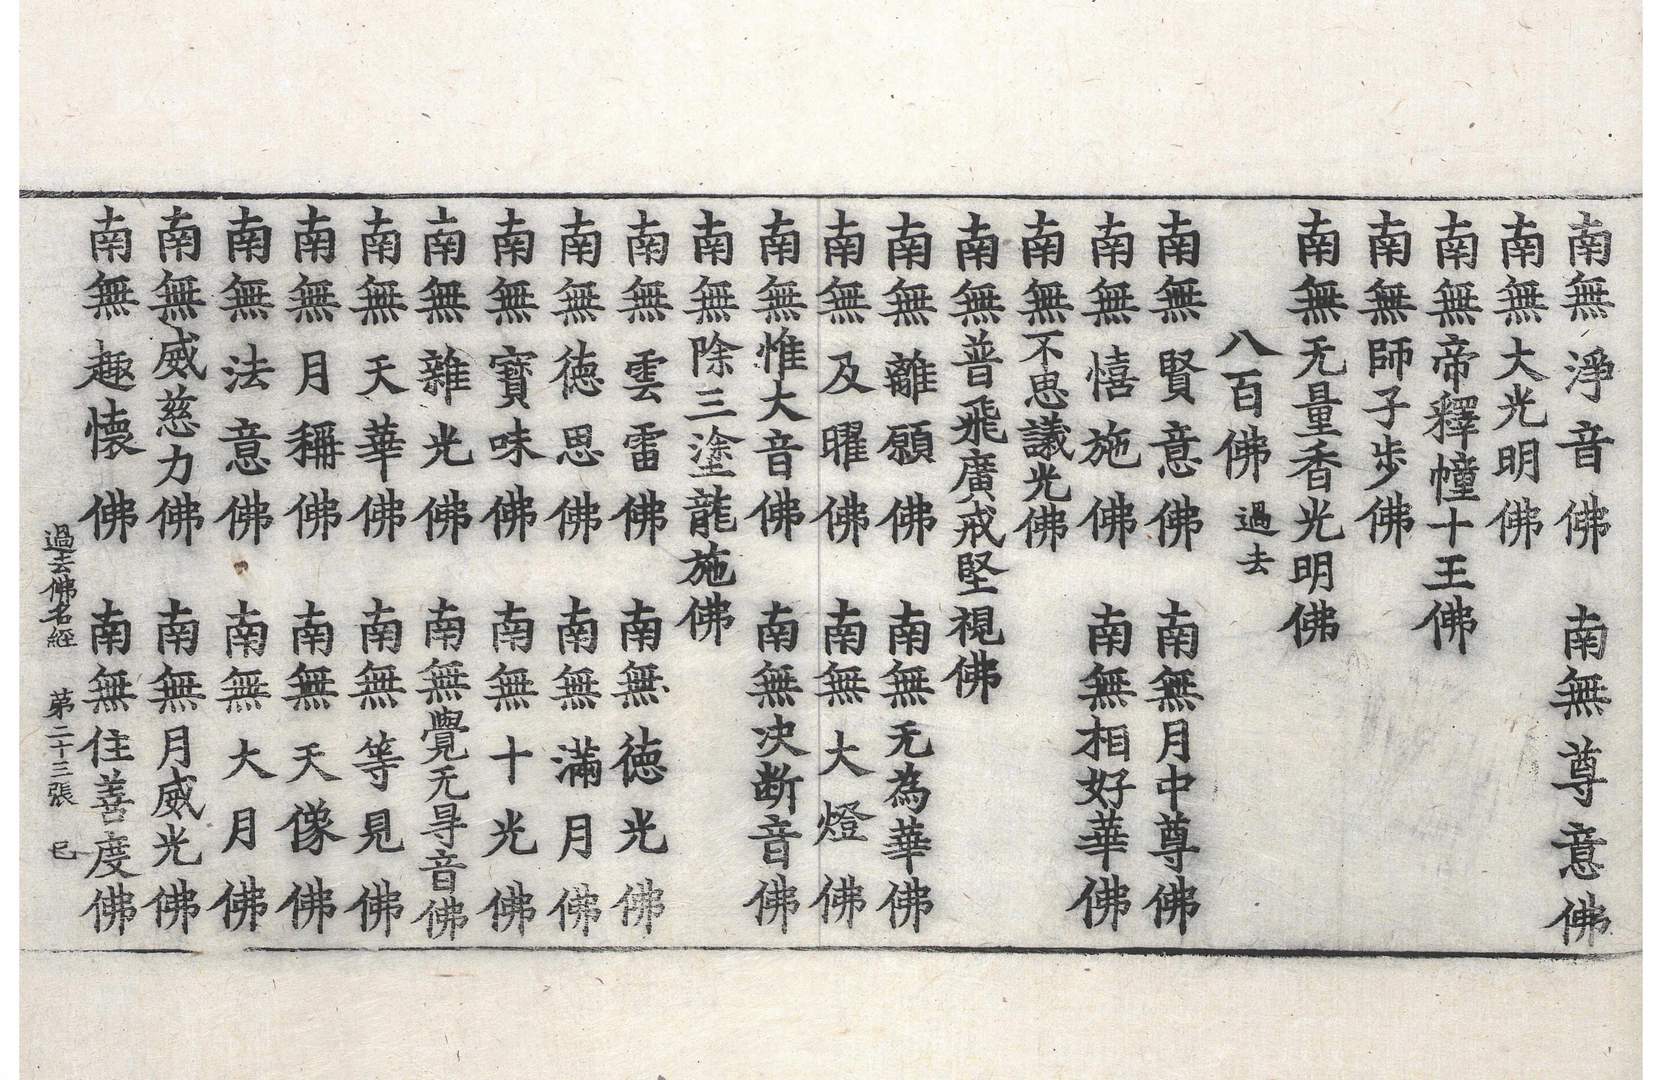 南無淨音佛　南無尊意佛
南無大光明佛
南無帝釋幢十王佛
南無師子步佛
南無无量香光明佛
八百佛 過去
南無賢意佛　南無月中尊佛
南無憘施佛　南無相好華佛
南無不思議光佛
南無普飛廣戒堅視佛
南無離願佛　南無无為華佛
南無及曜佛　南無大燈佛
南無惟大音佛　南無决断音佛
南無除三塗龍施佛
南無雲雷佛　南無徳光佛
南無徳思佛　南無滿月佛
南無寶味佛　南無十光佛
南無雜光佛　南無覺无㝵音佛
南無天華佛　南無等見佛
南無月稱佛　南無天像佛
南無法意佛　南無大月佛
南無威慈力佛　南無月威光佛
南無趣懷佛　南無住善度佛
過去佛名經　苐二十三張　巳